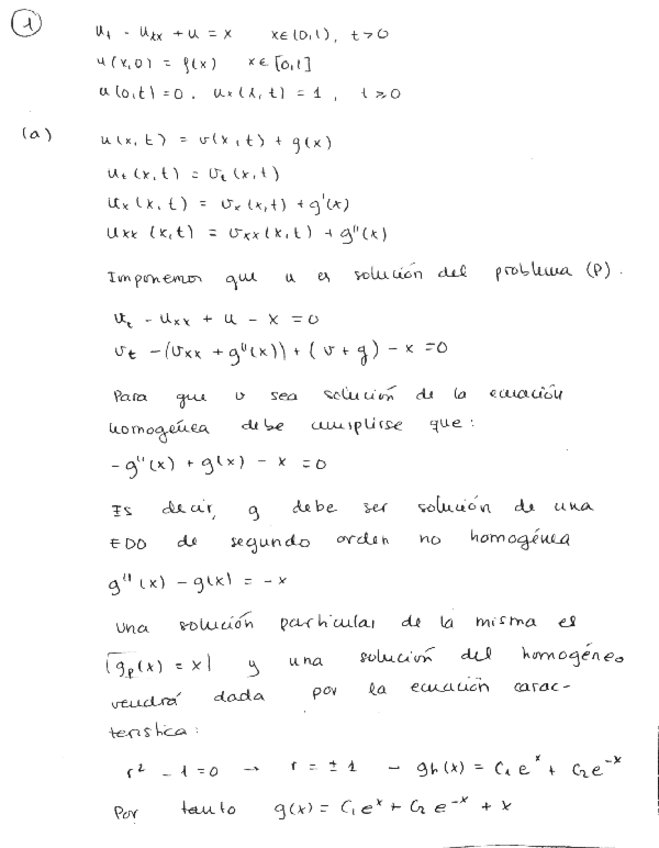 1
u_t - u_xx + u = x    x∈(0,1), t>0
u(x,0) = f(x)    x∈[0,1]
u(0,t)=0. u_x(1,t) = 1, t≥0
(a) u(x,t) = v(x,t) + g(x)
u_t(x,t) = v_t(x,t)
u_x(x,t) = v_x(x,t) + g'(x)
u_xx(x,t) = v_xx(x,t) + g''(x)
Imponemos que u es solución del problema (P).
u_t - u_xx + u - x = 0
v_t - (v_xx + g''(x)) + (v + g) - x = 0
Para que v sea solución de la ecuación
homogénea debe cumplirse que:
-g''(x) + g(x) - x = 0
Es decir, g debe ser solución de una
EDO de segundo orden no homogénea
g''(x) - g(x) = -x
Una solución particular de la misma es
g_p(x) = x y una solución del homogéneo
vendrá dada por la ecuación carac-
terística:
r² - 1 = 0 → r = ± 1 - g_h(x) = C₁e^x + C₂e^-x
Por tanto g(x) = C₁e^x + C₂e^-x + x